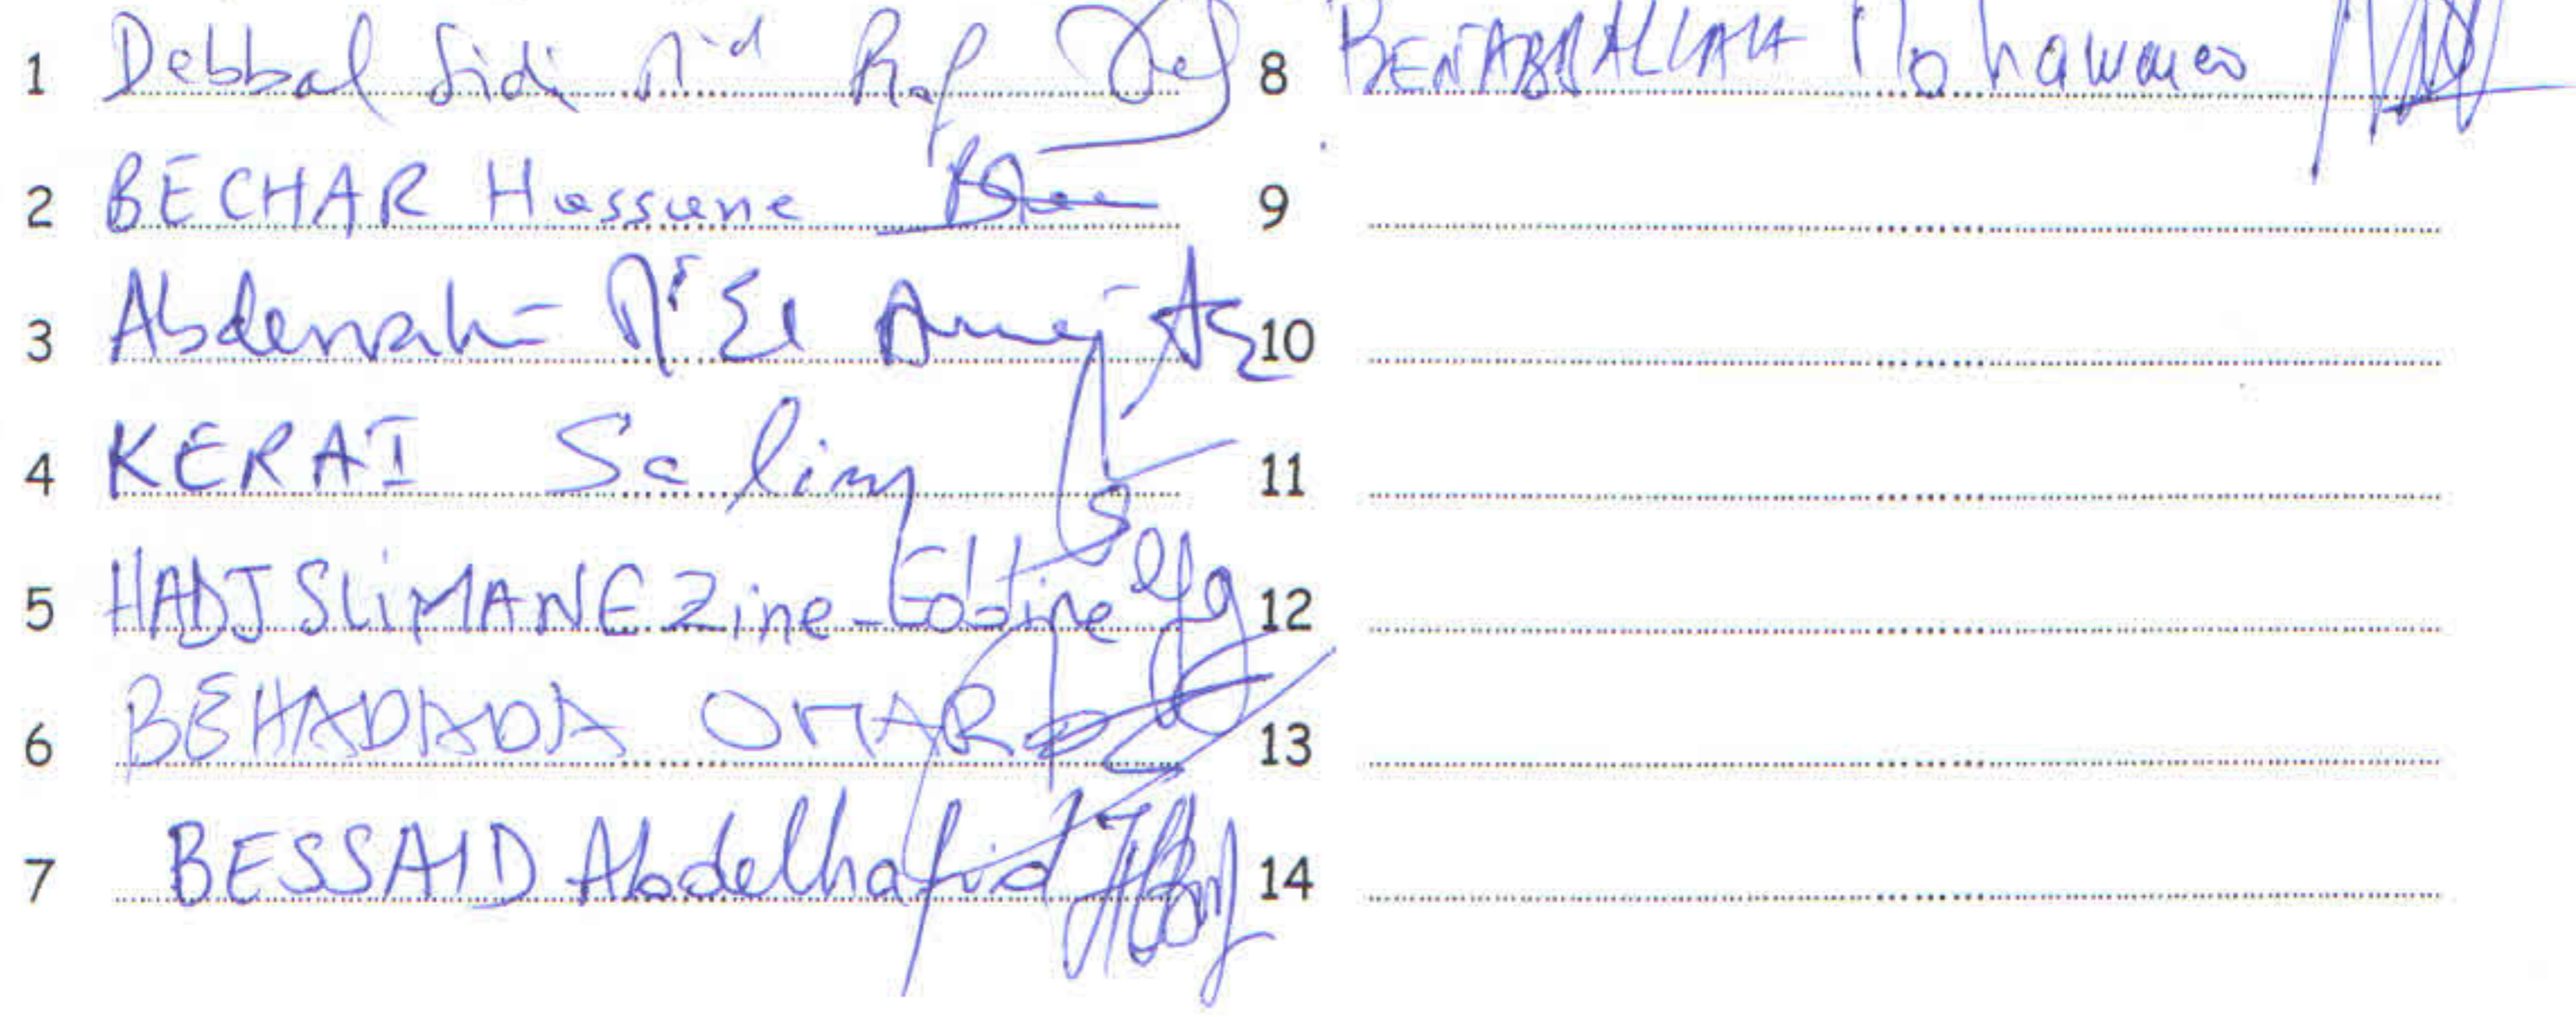 1 Debbal Sidi Md
2 BECHAR Hassane
3 Abderrahi El
4 KERAI Salim
5 HADJ SLIMANE Zine-Eddine
6 BEHADADA OMAR
7 BESSAID Abdelhafid
8 BENABDALLAH Mohammed
9
10
11
12
13
14